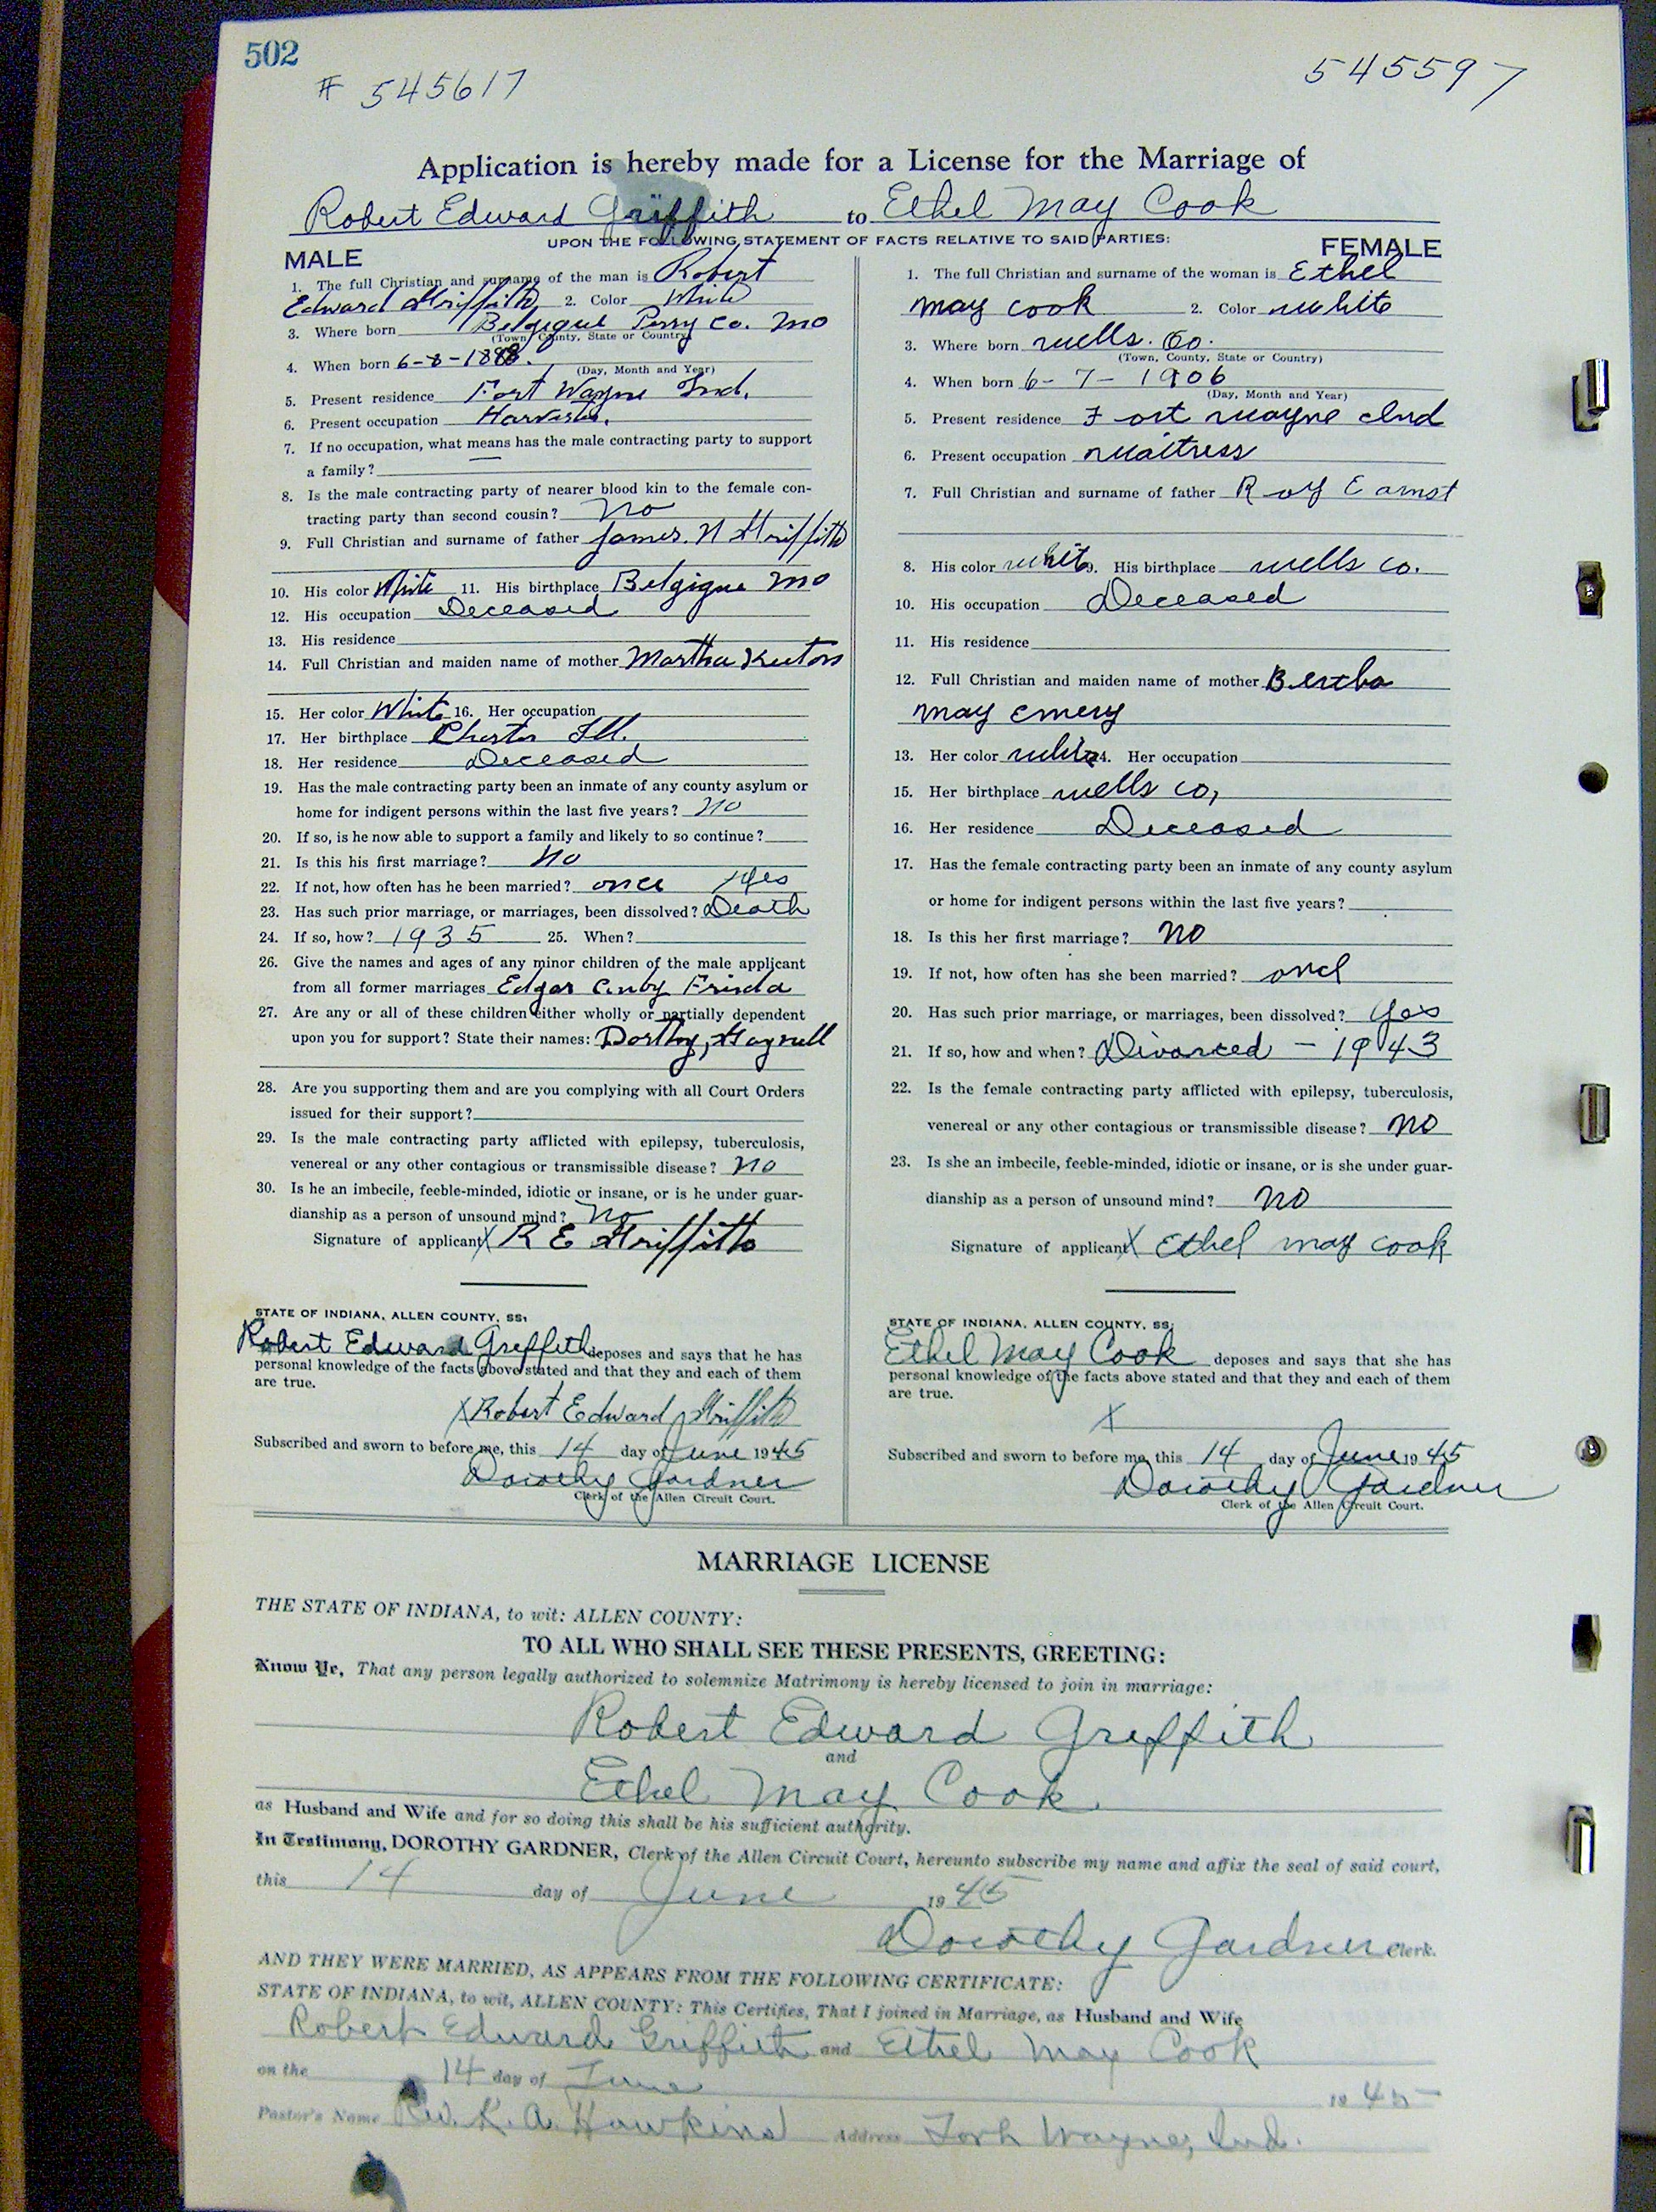 502
# 545617
545597
Application is hereby made for a License for the Marriage of
Robert Edward Griffith to Ethel May Cook
UPON THE FOLLOWING STATEMENT OF FACTS RELATIVE TO SAID PARTIES:
MALE
1. The full Christian and surname of the man is Robert
Edward Griffith 2. Color White
3. Where born Belgique Perry Co. Mo
(Town, County, State or Country)
4. When born 6-8-1888.
(Day, Month and Year)
5. Present residence Fort Wayne Ind.
6. Present occupation Harvester.
7. If no occupation, what means has the male contracting party to support
a family?
8. Is the male contracting party of nearer blood kin to the female con-
tracting party than second cousin? no
9. Full Christian and surname of father James. N Griffith
10. His color White 11. His birthplace Belgique Mo
12. His occupation Deceased
13. His residence
14. Full Christian and maiden name of mother Martha
15. Her color White 16. Her occupation
17. Her birthplace Chester Ill.
18. Her residence Deceased
19. Has the male contracting party been an inmate of any county asylum or
home for indigent persons within the last five years? no
20. If so, is he now able to support a family and likely to so continue?
21. Is this his first marriage? no
22. If not, how often has he been married? once yes
23. Has such prior marriage, or marriages, been dissolved? Death
24. If so, how? 1935 25. When?
26. Give the names and ages of any minor children of the male applicant
from all former marriages Edgar Frieda
27. Are any or all of these children either wholly or partially dependent
upon you for support? State their names: Dorthy,
28. Are you supporting them and are you complying with all Court Orders
issued for their support?
29. Is the male contracting party afflicted with epilepsy, tuberculosis,
venereal or any other contagious or transmissible disease? no
30. Is he an imbecile, feeble-minded, idiotic or insane, or is he under guar-
dianship as a person of unsound mind? no
Signature of applicant X R E Griffith
STATE OF INDIANA, ALLEN COUNTY, SS:
Robert Edward Griffith deposes and says that he has
personal knowledge of the facts above stated and that they and each of them
are true.
X Robert Edward Griffith
Subscribed and sworn to before me, this 14 day of June 1945
Dorothy Gardner
Clerk of the Allen Circuit Court.
FEMALE
1. The full Christian and surname of the woman is Ethel
May Cook 2. Color white
3. Where born Wells. Co.
(Town, County, State or Country)
4. When born 6-7-1906
(Day, Month and Year)
5. Present residence Fort Wayne Ind
6. Present occupation Waitress
7. Full Christian and surname of father Roy Earnst
8. His color white 9. His birthplace Wells Co.
10. His occupation Deceased
11. His residence
12. Full Christian and maiden name of mother Bertha
May Emery
13. Her color white 14. Her occupation
15. Her birthplace Wells Co,
16. Her residence Deceased
17. Has the female contracting party been an inmate of any county asylum
or home for indigent persons within the last five years?
18. Is this her first marriage? no
19. If not, how often has she been married? once
20. Has such prior marriage, or marriages, been dissolved? yes
21. If so, how and when? Divorced - 1943
22. Is the female contracting party afflicted with epilepsy, tuberculosis,
venereal or any other contagious or transmissible disease? no
23. Is she an imbecile, feeble-minded, idiotic or insane, or is she under guar-
dianship as a person of unsound mind? no
Signature of applicant X Ethel May Cook
STATE OF INDIANA, ALLEN COUNTY, SS:
Ethel May Cook deposes and says that she has
personal knowledge of the facts above stated and that they and each of them
are true.
X
Subscribed and sworn to before me, this 14 day of June 1945
Dorothy Gardner
Clerk of the Allen Circuit Court.
MARRIAGE LICENSE
THE STATE OF INDIANA, to wit: ALLEN COUNTY:
TO ALL WHO SHALL SEE THESE PRESENTS, GREETING:
Know Ye, That any person legally authorized to solemnize Matrimony is hereby licensed to join in marriage:
Robert Edward Griffith
and
Ethel May Cook
as Husband and Wife and for so doing this shall be his sufficient authority.
In Testimony, DOROTHY GARDNER, Clerk of the Allen Circuit Court, hereunto subscribe my name and affix the seal of said court,
this 14 day of June 1945
Dorothy Gardner Clerk.
AND THEY WERE MARRIED, AS APPEARS FROM THE FOLLOWING CERTIFICATE:
STATE OF INDIANA, to wit, ALLEN COUNTY: This Certifies, That I joined in Marriage, as Husband and Wife
Robert Edward Griffith and Ethel May Cook
on the 14 day of June 1945
Pastor's Name Rev. K. A. Hawkins Address Fort Wayne, Ind.